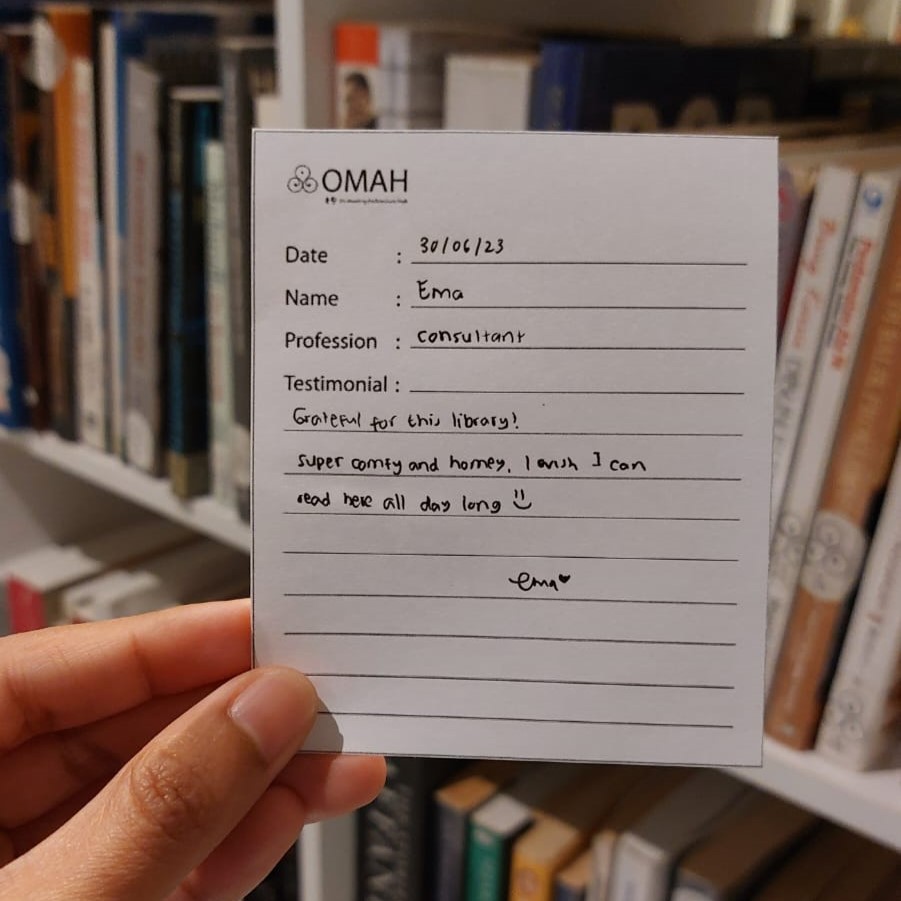 OMAH
Date : 30/06/23
Name : Ema
Profession : consultant
Testimonial :
Grateful for this library!
super comfy and homey. I wish I can
read here all day long
ema